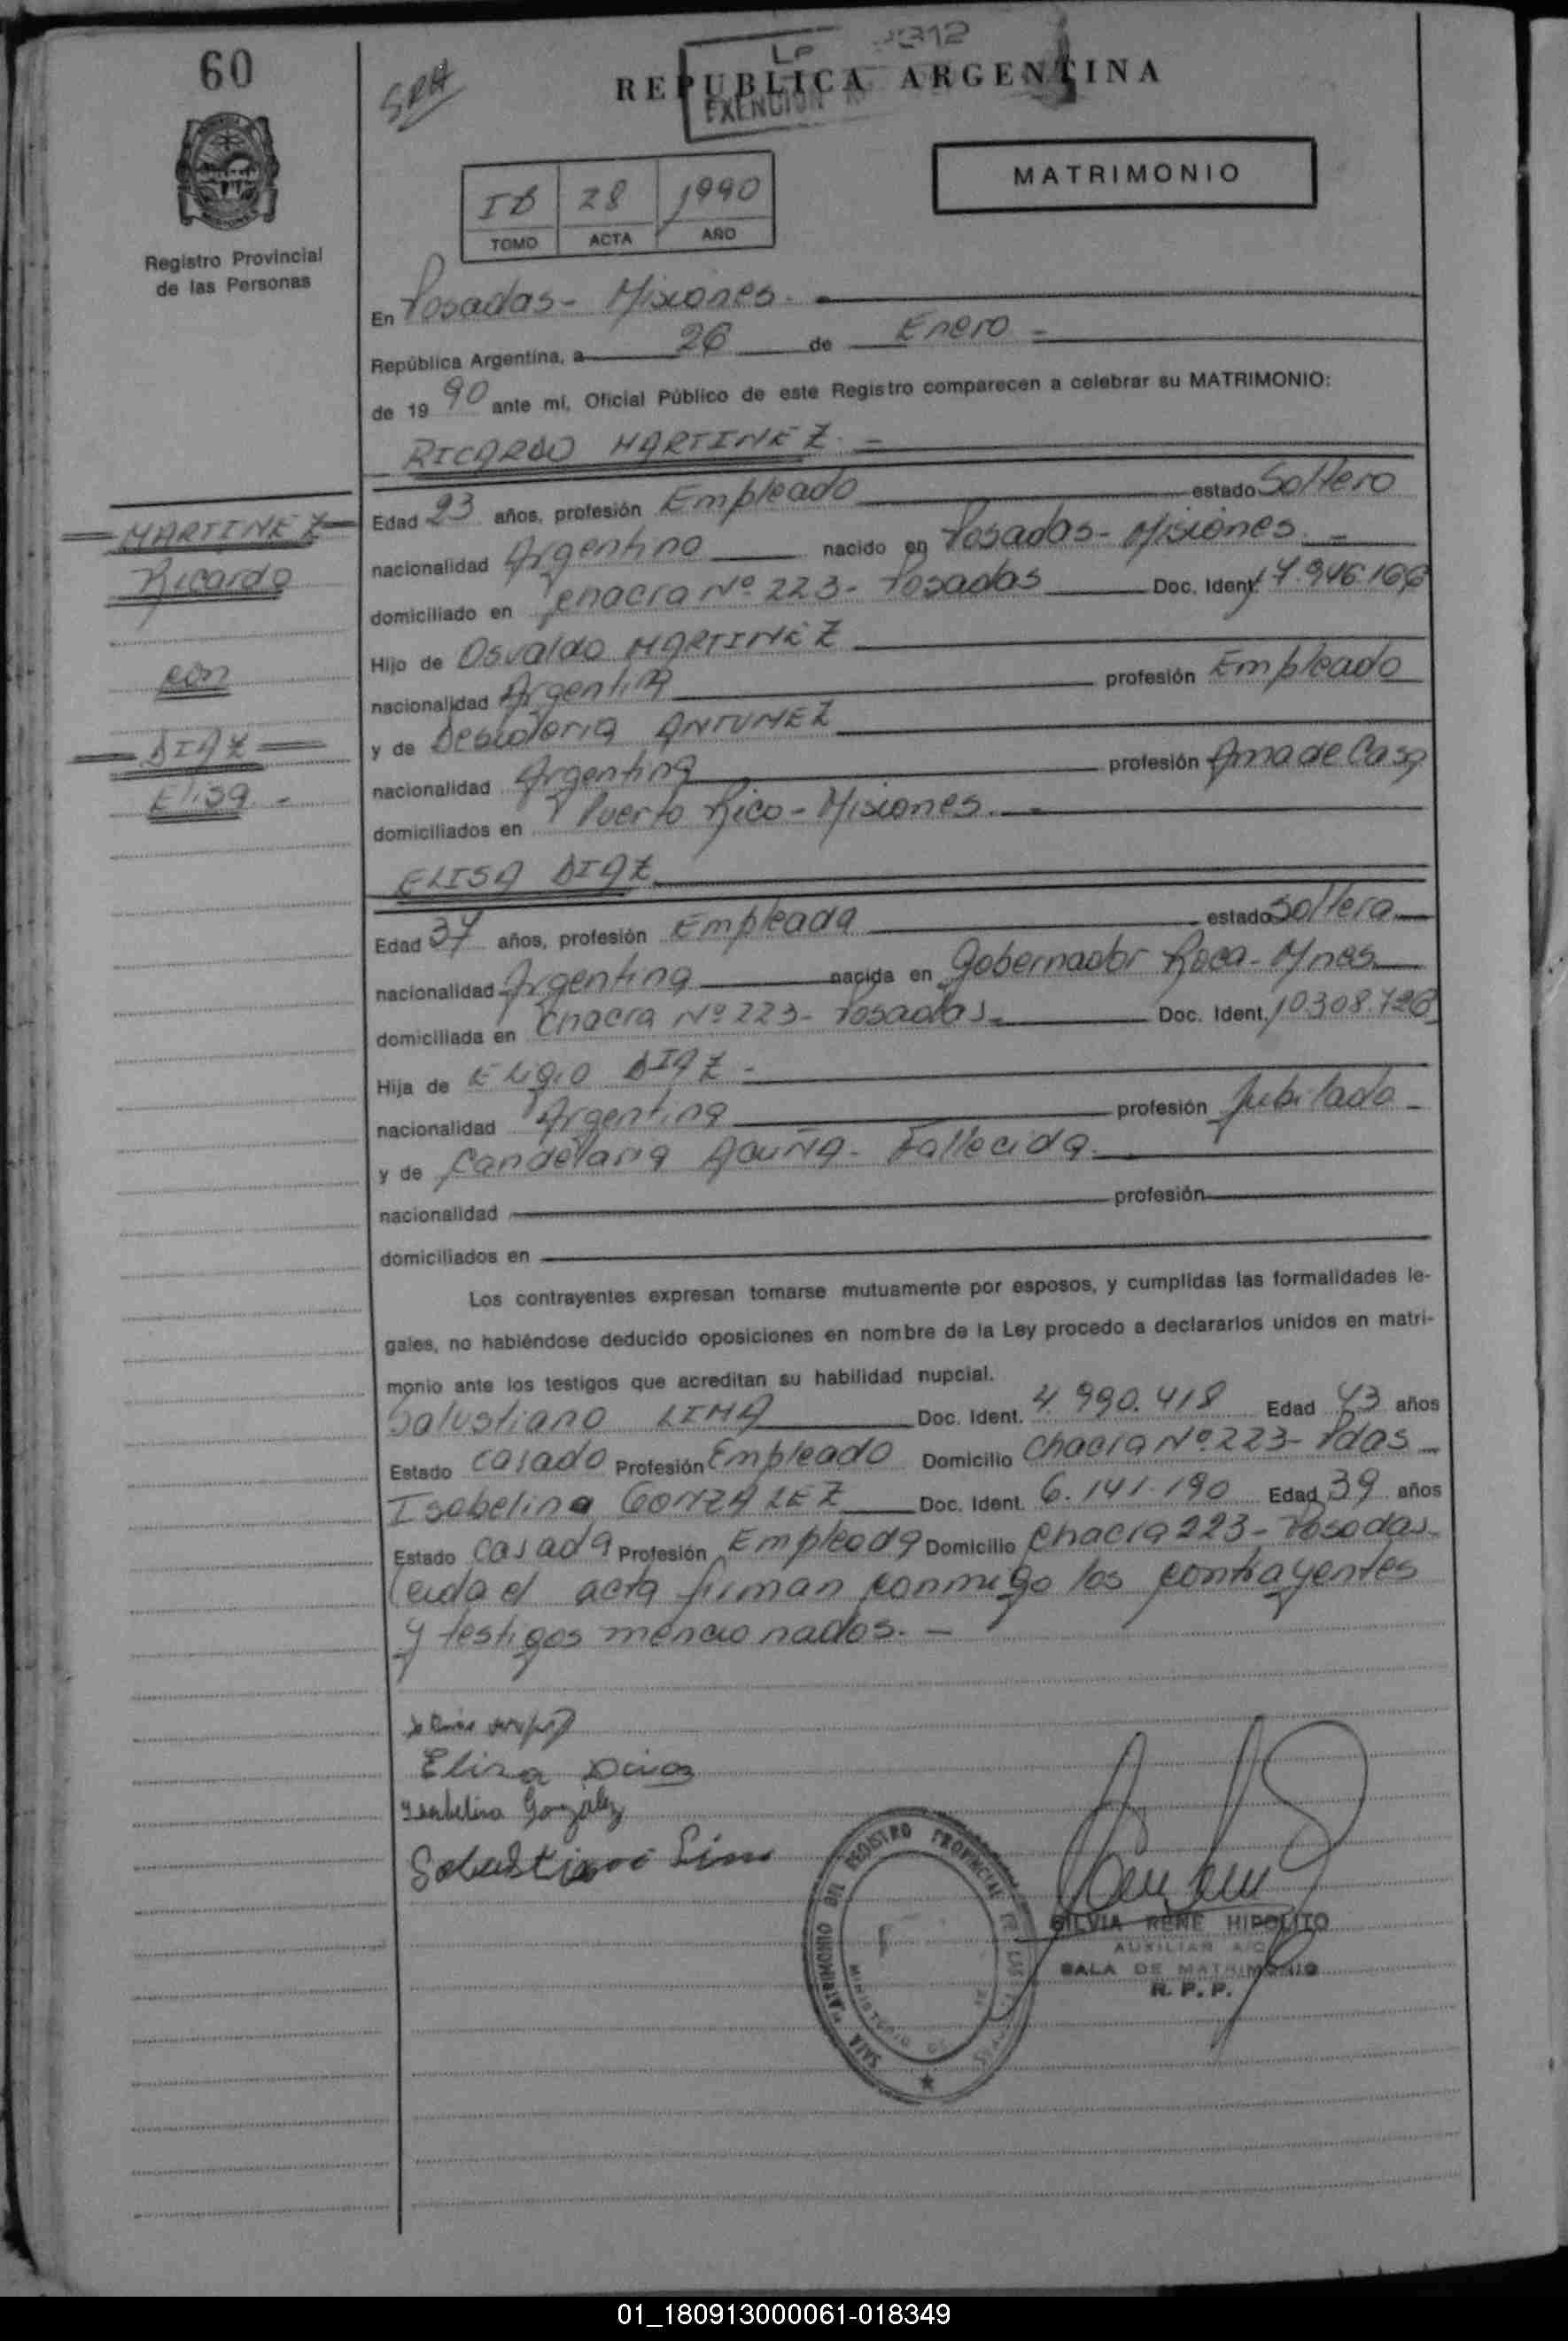 60
SRA
LP
REPUBLICA ARGENTINA
EXENCION
MATRIMONIO
IB 28 1990
TOMO ACTA AÑO
Registro Provincial
de las Personas
En Posadas - Misiones.
República Argentina, a 26 de Enero -
de 19 90 ante mí, Oficial Público de este Registro comparecen a celebrar su MATRIMONIO:
RICARDO MARTINEZ. -
MARTINEZ
Ricardo
con
DIAZ
Elisa -
Edad 23 años, profesión Empleado estado Soltero
nacionalidad Argentino nacido en Posadas - Misiones. -
domiciliado en chacra Nº 223 - Posadas Doc. Ident. 17.946.166
Hijo de Osvaldo MARTINEZ
nacionalidad Argentina profesión Empleado
y de ANTUNEZ
nacionalidad Argentina profesión Ama de Casa
domiciliados en Puerto Rico - Misiones. -
ELISA DIAZ
Edad 37 años, profesión Empleada estado Soltera
nacionalidad Argentina nacida en Gobernador Roca - Mnes
domiciliada en Chacra Nº 223 - Posadas - Doc. Ident. 10.308.726
Hija de Eligio DIAZ -
nacionalidad Argentina profesión Jubilado -
y de Candelaria Acuña - Fallecida
nacionalidad profesión
domiciliados en
Los contrayentes expresan tomarse mutuamente por esposos, y cumplidas las formalidades le-
gales, no habiéndose deducido oposiciones en nombre de la Ley procedo a declararlos unidos en matri-
monio ante los testigos que acreditan su habilidad nupcial.
Salustiano LIMA Doc. Ident. 4.990.418 Edad 43 años
Estado casado Profesión Empleado Domicilio Chacra Nº 223 - Pdas
Isabelina GONZALEZ Doc. Ident. 6.141.190 Edad 39 años
Estado casada Profesión Empleada Domicilio Chacra 223 - Posadas
Leida el acta firman conmigo los contrayentes
y testigos mencionados. -
Elisa Diaz
Isabelina González
SALA MATRIMONIO DEL REGISTRO PROVINCIAL DE LAS
MINISTERIO DE
SILVIA RENE HIPOLITO
AUXILIAR A/C
SALA DE MATRIMONIO
R. P. P.
01_180913000061-018349